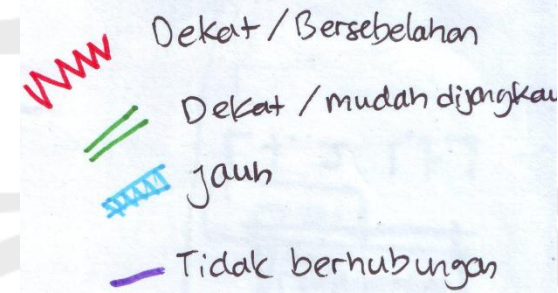 Dekat / Bersebelahan
Dekat / mudah dijangkau
jauh
Tidak berhubungan